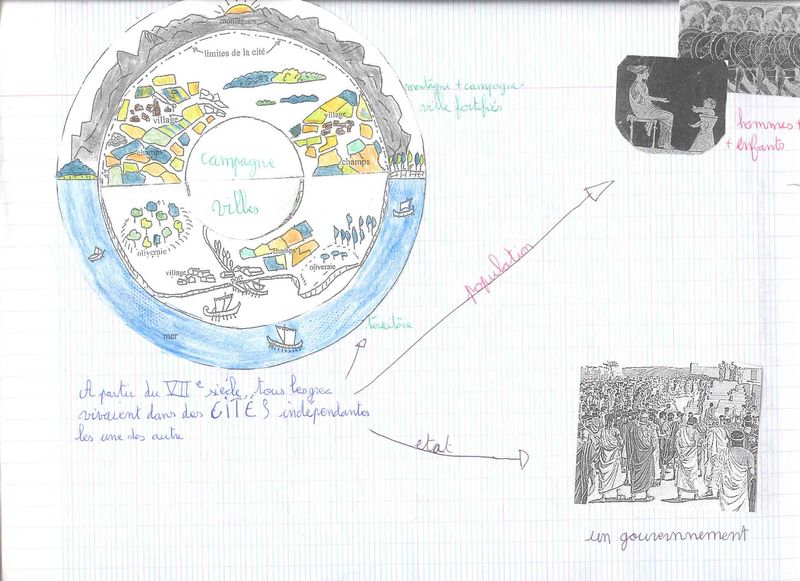 montagnes
limites de la cité
montagne + campagne +
ville fortifiés
village
village
champs
champs
campagne
villes
hommes +
+ enfants
oliveraie
champs
oliveraie
village
port
mer
territoire
population
A partir du VII e siècle, tous les grec
vivaient dans des CITÉS indépendantes
les une des autre
etat
un gouvernnement